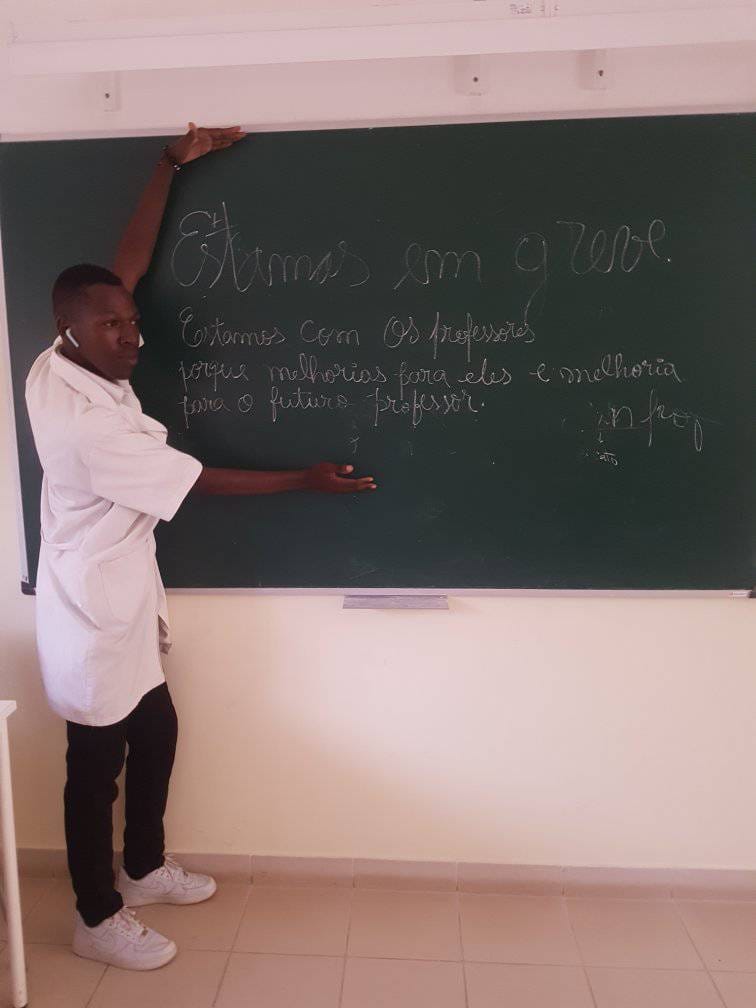 Estamos em greve.
Estamos com Os professores
porque melhorias para eles e melhoria
para o futuro professor.
prof